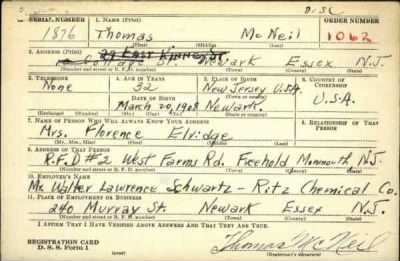 D.S.C
SERIAL NUMBER 1. NAME (Print) ORDER NUMBER
1876 Thomas McNeil 1062
(First) (Middle) (Last)
2. ADDRESS (Print)
29 East Kinney St.
St. Newark Essex N.J.
(Number and street or R. F. D. number) (Town) (County) (State)
3. TELEPHONE 4. AGE IN YEARS 5. PLACE OF BIRTH 6. COUNTRY OF CITIZENSHIP
None 32 New Jersey U.S.A.
DATE OF BIRTH U.S.A.
March 20, 1908 Newark.
(Mo.) (Day) (Yr.)
7. NAME OF PERSON WHO WILL ALWAYS KNOW YOUR ADDRESS 8. RELATIONSHIP OF THAT PERSON
Mrs. Florence Elvidge
(Mr., Mrs., Miss) (First) (Middle) (Last)
9. ADDRESS OF THAT PERSON
R.F.D #2 West Farms Rd. Freehold Monmouth N.J.
(Number and street or R. F. D. number) (Town) (County) (State)
10. EMPLOYER'S NAME
Mr. Walter Lawrence Schwartz - Ritz Chemical Co.
11. PLACE OF EMPLOYMENT OR BUSINESS
240 Murray St. Newark Essex N.J.
(Number and street or R. F. D. number) (Town) (County) (State)
I AFFIRM THAT I HAVE VERIFIED ABOVE ANSWERS AND THAT THEY ARE TRUE.
REGISTRATION CARD
D. S. S. Form 1 (over) Thomas McNeil
(Registrant's signature)